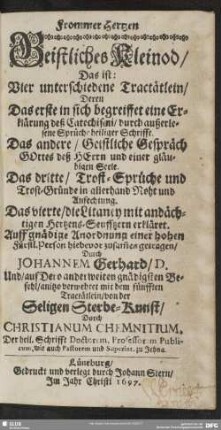 Frommer Hertzen
Geistliches Kleinod/
Das ist:
Vier unterschiedene Tractätlein/
Deren
Das erste in sich begreiffet eine Er-
klärung deß Catechismi/durch außerle-
sene Sprüch heiliger Schrifft.
Das andere/Geistliche Gespräch
GOttes deß HErrn und einer gläu-
bigen Seele.
Das dritte/Trost-Sprüche und
Trost-Gründe in allerhand Noht und
Anfechtung.
Das vierte/die Litaney mit andäch-
tigen Hertzens-Seufftzern erkläret.
Auff gnädige Anordnung einer hohen
Fürstl. Person hiebevor zusammen getragen/
Durch
JOHANNEM Gerhard/D.
Und/auf Dero anderweiten gnädigsten Be-
fehl/anitzo vermehret mit dem fünfften
Tractätlein/von der
Seligen Sterbe-Kunst/
Durch
CHRISTIANUM CHEMNITIUM,
Der heil. Schrifft Doctorem, Professorem Publi-
cum, wie auch Pastorem und Superint. zu Jehna.
Lüneburg/
Gedruckt und verlegt durch Johann Stern/
Im Jahr Christi 1697.